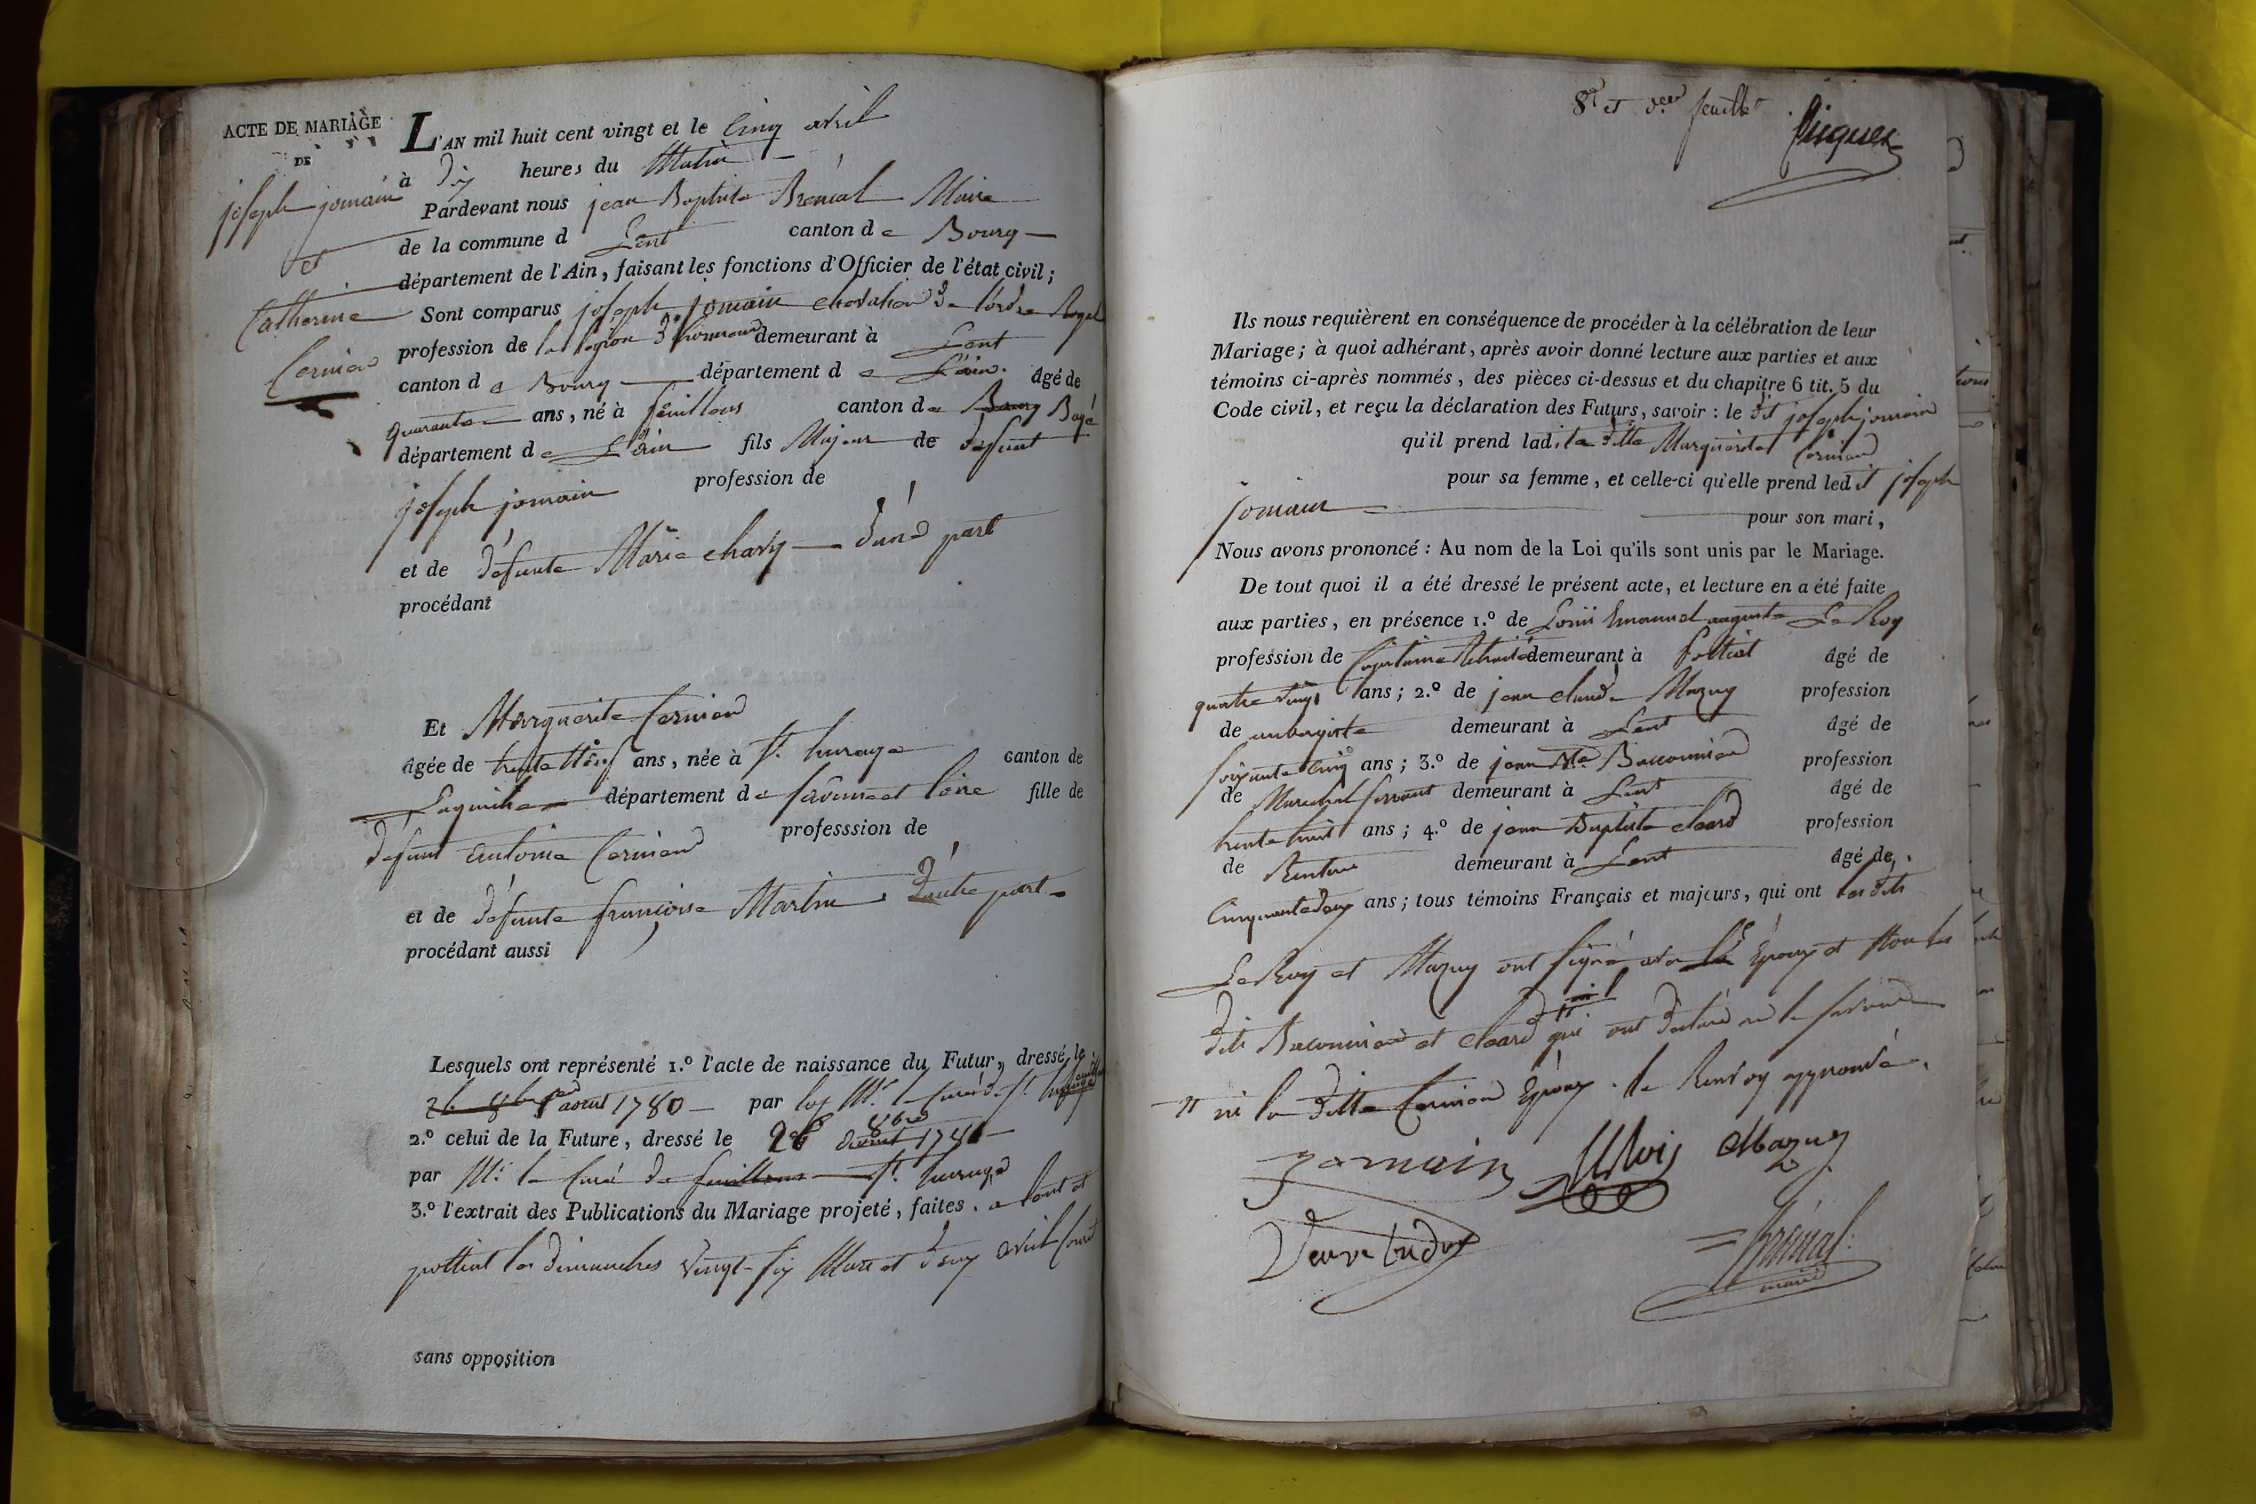 ACTE DE MARIAGE
DE
joseph jomain
et
Catherine
Cornier
L'AN mil huit cent vingt et le Cinq avril
à Dix heures du Matin
Pardevant nous jean Baptiste Brénial Maire
de la commune d Lent canton de Bourg
département de l'Ain, faisant les fonctions d'Officier de l'état civil;
Sont comparus joseph jomain chevalier De l'ordre Royal
profession de la légion D'honneur demeurant à Lent
canton de Bourg département de L'ain. âgé de
quarante ans, né à feuillens canton de Bourg Bagé
département de L'ain fils Majeur de défunt
joseph jomain profession de
et de défunte Marie Charly D'une part
procédant
Et Marguerite Cornier
âgée de trente neuf ans, née à St. huruge canton de
département de saone et loire fille de
défunt antoine Cornier professsion de
et de défunte françoise Martin D'autre part
procédant aussi
Lesquels ont représenté 1.º l'acte de naissance du Futur, dressé le
aout 1780 par Mr. le Curé de
2.º celui de la Future, dressé le 26 8bre 1780
par Mr. le Curé de feuillens St. huruge
3.º l'extrait des Publications du Mariage projeté, faites. a lent et
les dimanches vingt-six Mars et deux avril
sans opposition
8e et feuillet
Ils nous requièrent en conséquence de procéder à la célébration de leur
Mariage; à quoi adhérant, après avoir donné lecture aux parties et aux
témoins ci-après nommés, des pièces ci-dessus et du chapitre 6 tit. 5 du
Code civil, et reçu la déclaration des Futurs, savoir: le dit joseph jomain
qu'il prend ladite Marguerite Cornier
pour sa femme, et celle-ci qu'elle prend ledit joseph
jomain pour son mari,
Nous avons prononcé: Au nom de la Loi qu'ils sont unis par le Mariage.
De tout quoi il a été dressé le présent acte, et lecture en a été faite
aux parties, en présence 1.º de Louis Emanuel auguste Le Roy
profession de Capitaine Retraité demeurant à âgé de
quatre vingt ans; 2.º de jean claude Mazuy profession
de aubergiste demeurant à Lent âgé de
soixante cinq ans; 3.º de jean profession
de Marechal ferrant demeurant à Lent âgé de
trente huit ans; 4.º de jean Baptiste profession
de Rentier demeurant à Lent âgé de
Cinquante deux ans; tous témoins Français et majeurs, qui ont les dits
Le Roy et Mazuy ont signé avec Epoux et Non les
dits et qui ont déclaré ne le savoir
ni la ditte Cornier Epouse. le Renvoy approuvé.
jomain Mazuy
Brénial
maire